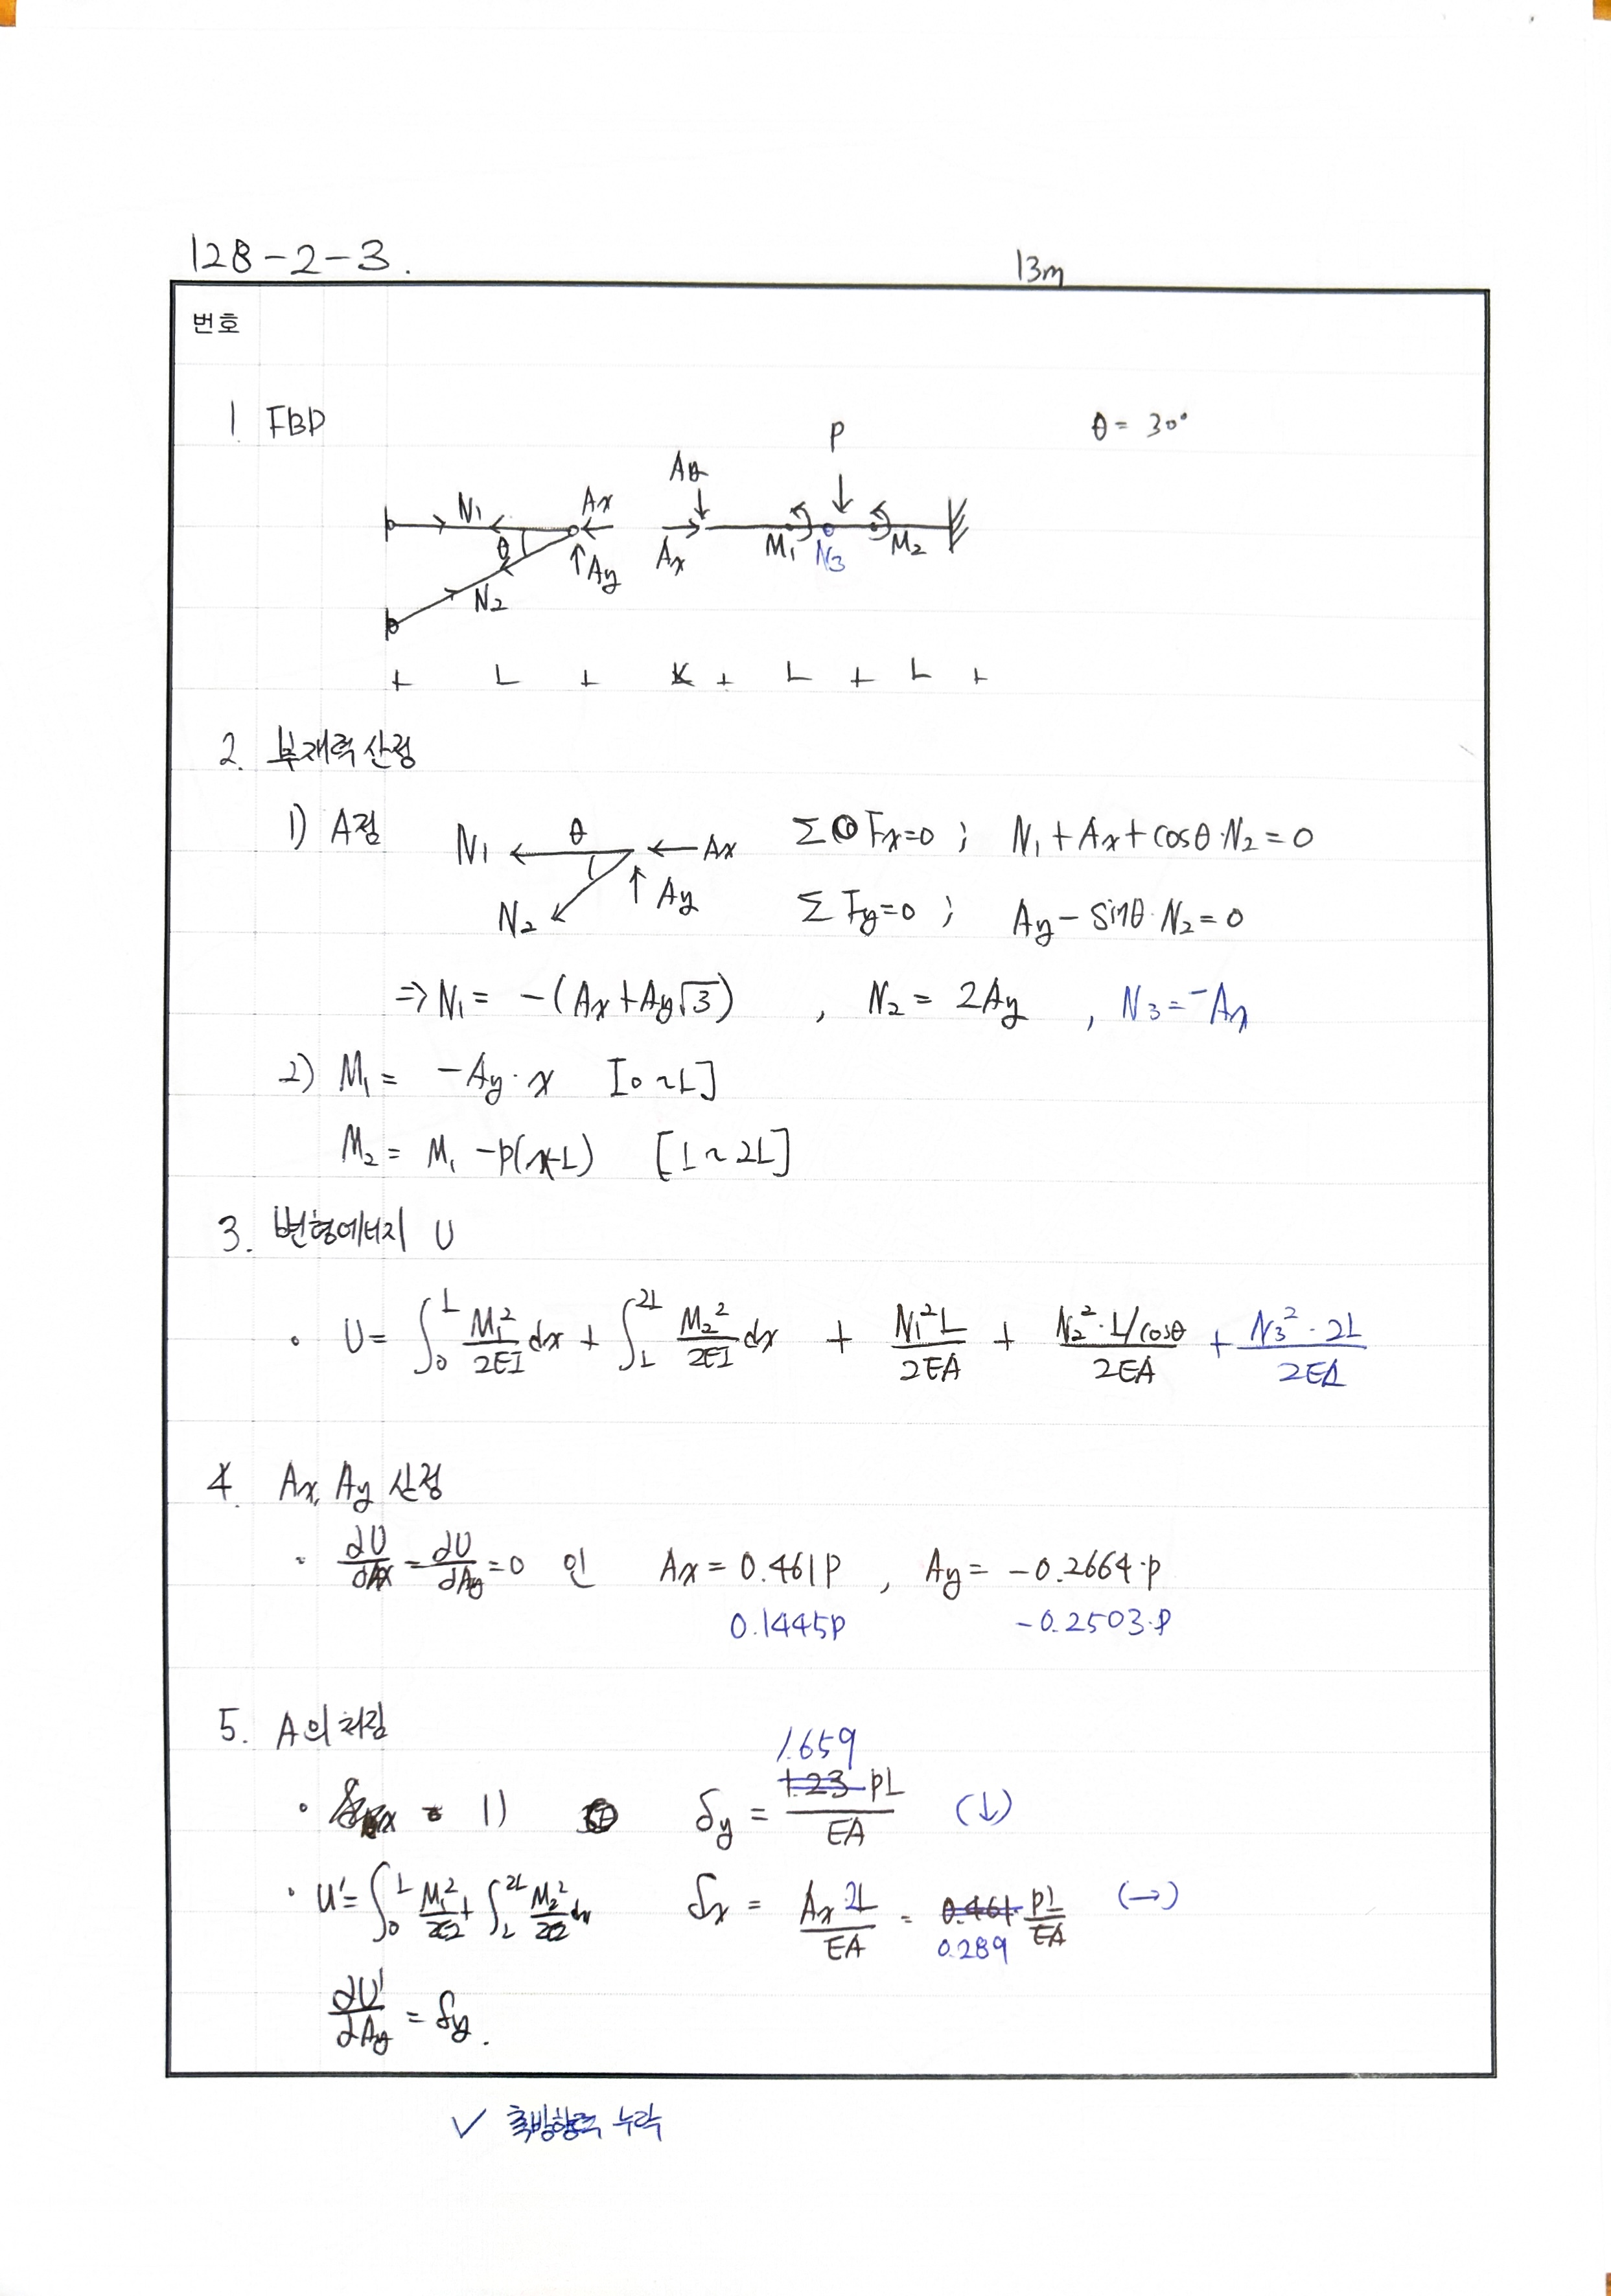 128-2-3.
13m
번호
1 FBD
θ = 30°
P
Ay
N1 Ax
Ax M1 N3 M2
θ Ay
N2
+ L + + L + L +
2. 부재력 산정
1) A점 N1 θ Ax ΣFx=0 ; N1 + Ax + cosθ·N2 = 0
N2 Ay ΣFy=0 ; Ay - sinθ·N2 = 0
⇒ N1 = -(Ax + Ay√3) , N2 = 2Ay , N3 = -Ax
2) M1 = -Ay·x [0~L]
M2 = M1 - P(x-L) [L~2L]
3. 변형에너지 U
• U = ∫₀^L M1²/2EI dx + ∫_L^2L M2²/2EI dx + N1²L/2EA + N2²·L/cosθ/2EA + N3²·2L/2EA
4. Ax, Ay 산정
• ∂U/∂Ax = ∂U/∂Ay = 0 인 Ax = 0.461P , Ay = -0.2664·P
0.1445P -0.2503·P
5. A의 처짐
1.659
• 1) δy = 1.23 PL/EA (↓)
• U' = ∫₀^L M1²/2EI + ∫_L^2L M2²/2EI dx δx = Ax 2L/EA = 0.461 PL/EA (→)
0.289
∂U'/∂Ay = δy.
✓ 축방향력 누락